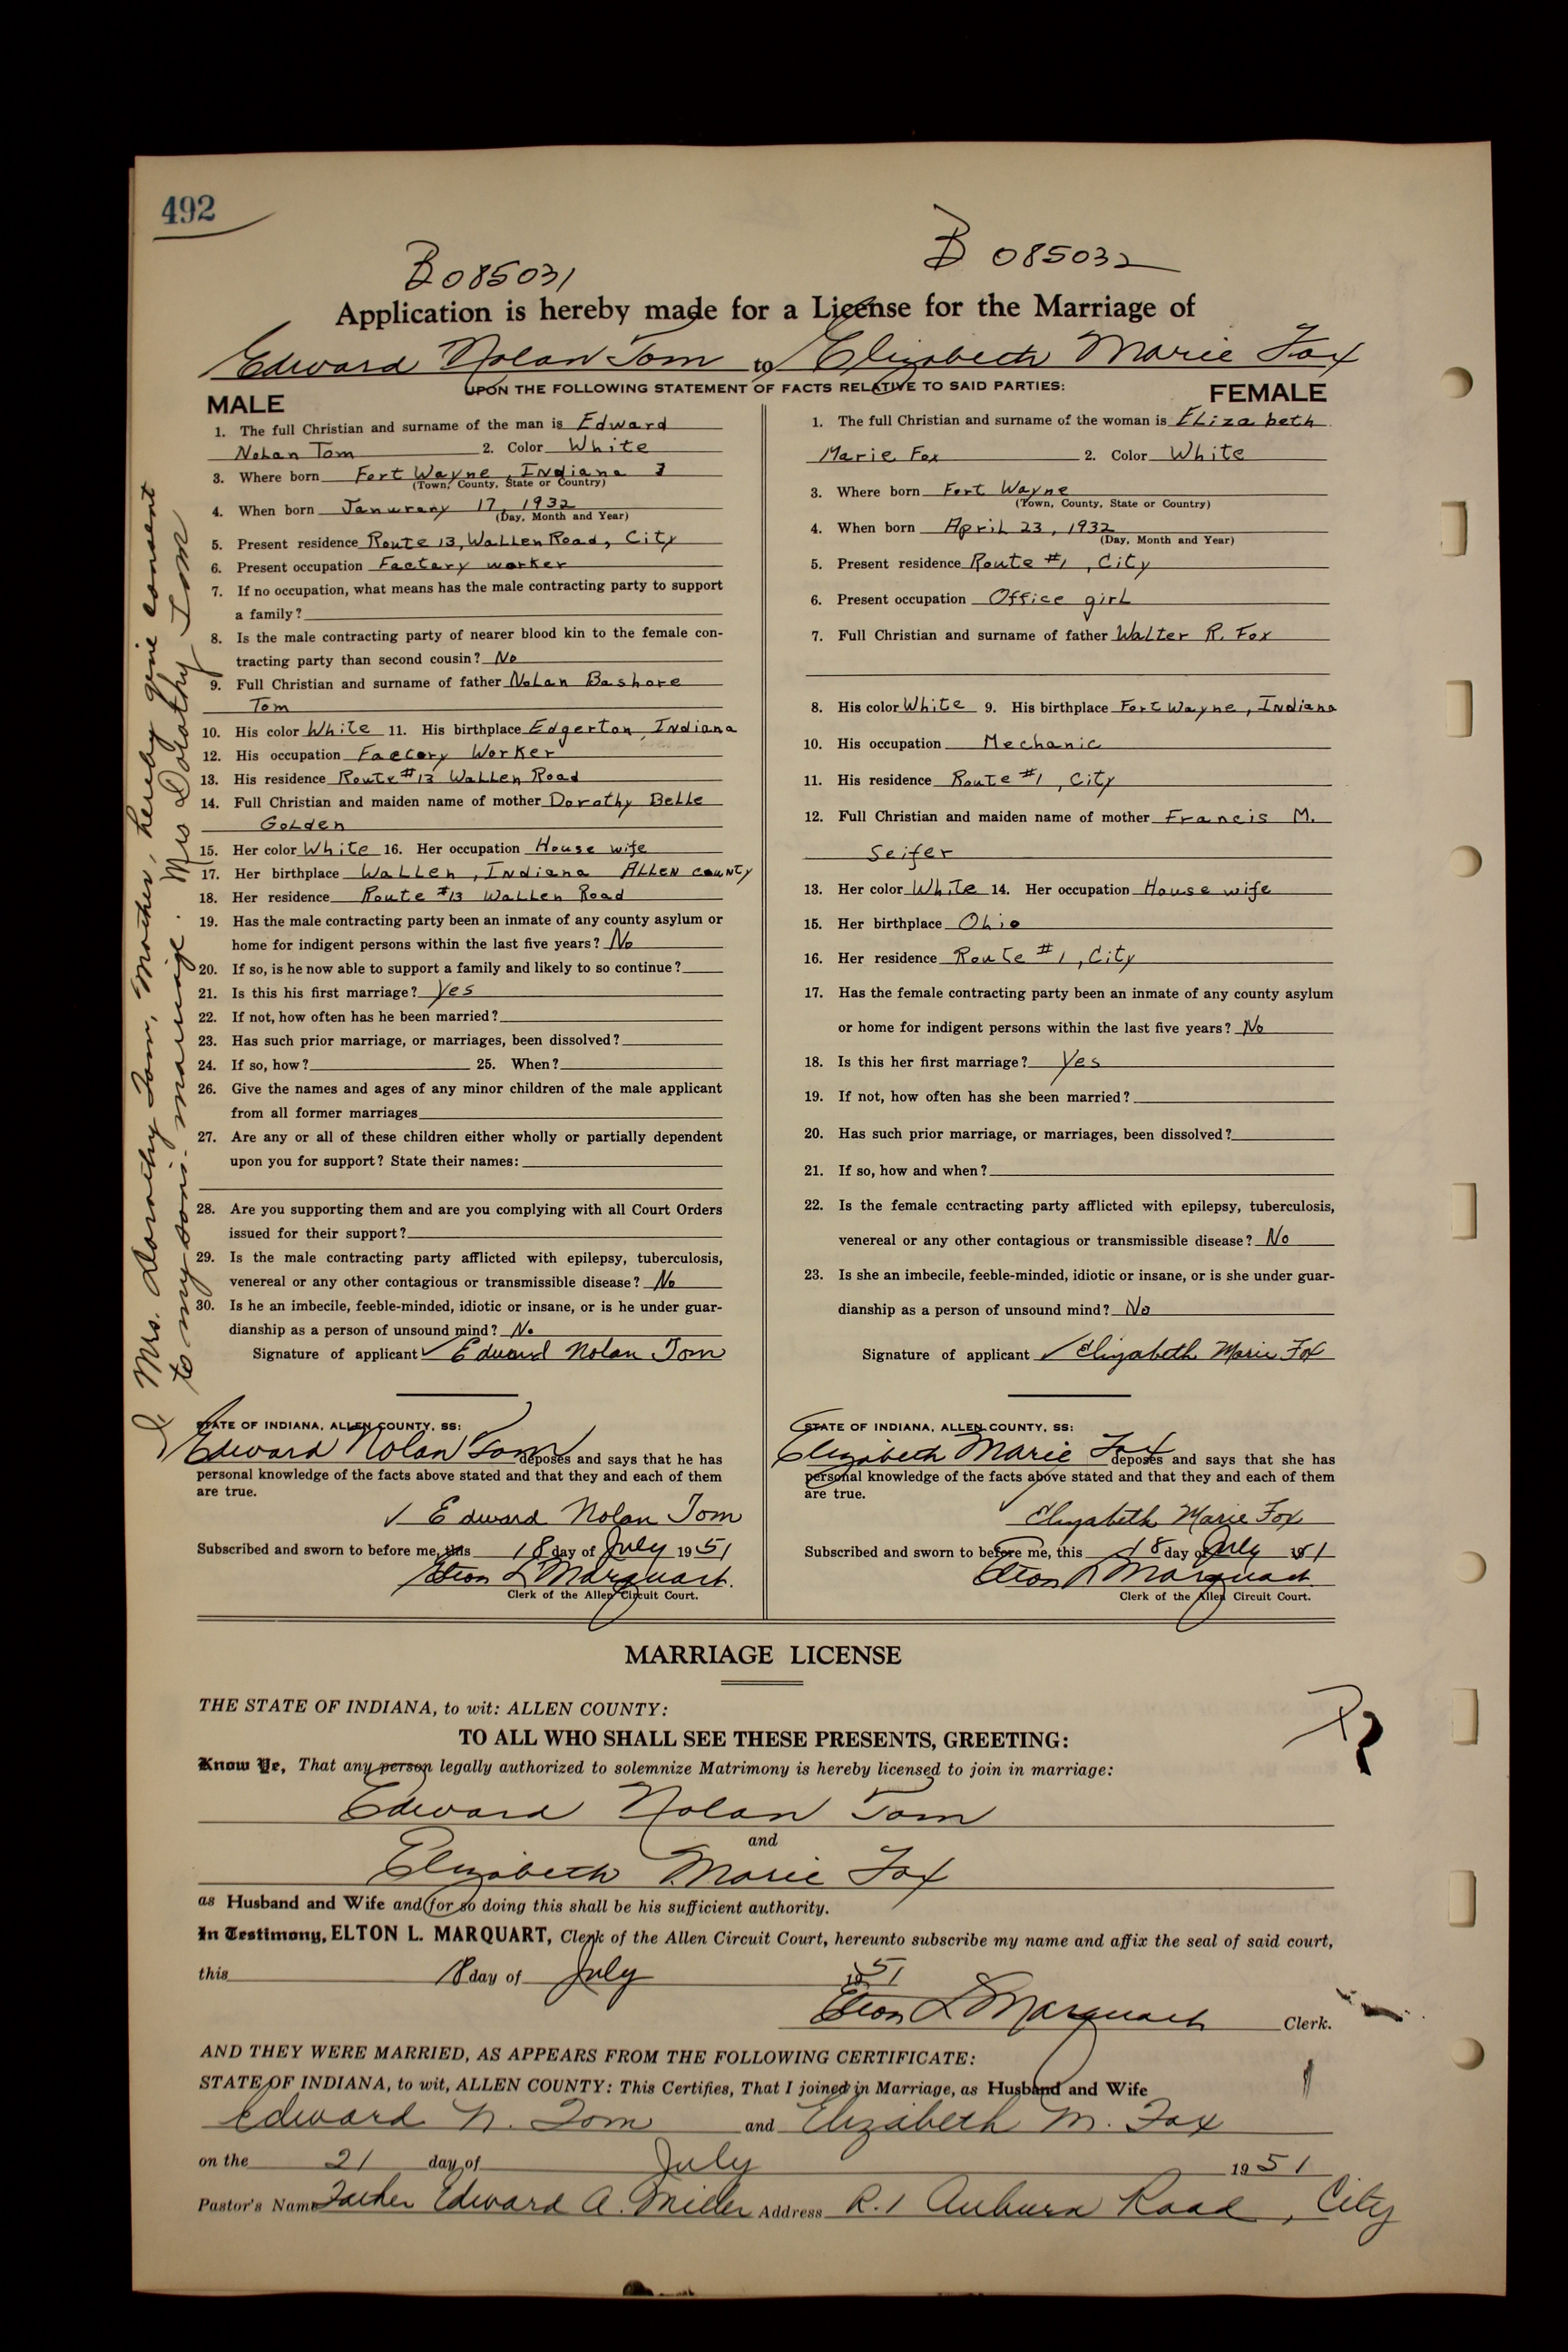 492
B085031
B 085032
Application is hereby made for a License for the Marriage of
Edward Nolan Tom to Elizabeth Marie Fox
UPON THE FOLLOWING STATEMENT OF FACTS RELATIVE TO SAID PARTIES:
MALE
1. The full Christian and surname of the man is Edward
Nolan Tom 2. Color White
3. Where born Fort Wayne, Indiana
(Town, County, State or Country)
4. When born Janurary 17, 1932
(Day, Month and Year)
5. Present residence Route 13, Wallen Road, City
6. Present occupation Factory worker
7. If no occupation, what means has the male contracting party to support
a family?
8. Is the male contracting party of nearer blood kin to the female con-
tracting party than second cousin? No
9. Full Christian and surname of father Nolan Bashore
Tom
10. His color White 11. His birthplace Edgerton, Indiana
12. His occupation Factory Worker
13. His residence Route #13 Wallen Road
14. Full Christian and maiden name of mother Dorothy Belle
Golden
15. Her color White 16. Her occupation House wife
17. Her birthplace Wallen, Indiana Allen county
18. Her residence Route #13 Wallen Road
19. Has the male contracting party been an inmate of any county asylum or
home for indigent persons within the last five years? No
20. If so, is he now able to support a family and likely to so continue?
21. Is this his first marriage? Yes
22. If not, how often has he been married?
23. Has such prior marriage, or marriages, been dissolved?
24. If so, how? 25. When?
26. Give the names and ages of any minor children of the male applicant
from all former marriages
27. Are any or all of these children either wholly or partially dependent
upon you for support? State their names:
28. Are you supporting them and are you complying with all Court Orders
issued for their support?
29. Is the male contracting party afflicted with epilepsy, tuberculosis,
venereal or any other contagious or transmissible disease? No
30. Is he an imbecile, feeble-minded, idiotic or insane, or is he under guar-
dianship as a person of unsound mind? No
Signature of applicant ✓ Edward Nolan Tom
I, Mrs. Dorothy Tom, Mother, hereby give consent
to my sons marriage. Mrs Dorothy Tom
STATE OF INDIANA, ALLEN COUNTY, SS:
Edward Nolan Tom deposes and says that he has
personal knowledge of the facts above stated and that they and each of them
are true.
✓ Edward Nolan Tom
Subscribed and sworn to before me, this 18 day of July 1951
Elton L Marquart.
Clerk of the Allen Circuit Court.
FEMALE
1. The full Christian and surname of the woman is Elizabeth
Marie Fox 2. Color White
3. Where born Fort Wayne
(Town, County, State or Country)
4. When born April 23, 1932
(Day, Month and Year)
5. Present residence Route #1, City
6. Present occupation Office girl
7. Full Christian and surname of father Walter R. Fox
8. His color White 9. His birthplace Fort Wayne, Indiana
10. His occupation Mechanic
11. His residence Route #1, City
12. Full Christian and maiden name of mother Francis M.
Seifer
13. Her color White 14. Her occupation House wife
15. Her birthplace Ohio
16. Her residence Route #1, City
17. Has the female contracting party been an inmate of any county asylum
or home for indigent persons within the last five years? No
18. Is this her first marriage? Yes
19. If not, how often has she been married?
20. Has such prior marriage, or marriages, been dissolved?
21. If so, how and when?
22. Is the female contracting party afflicted with epilepsy, tuberculosis,
venereal or any other contagious or transmissible disease? No
23. Is she an imbecile, feeble-minded, idiotic or insane, or is she under guar-
dianship as a person of unsound mind? No
Signature of applicant ✓ Elizabeth Marie Fox
STATE OF INDIANA, ALLEN COUNTY, SS:
Elizabeth Marie Fox deposes and says that she has
personal knowledge of the facts above stated and that they and each of them
are true.
Elizabeth Marie Fox
Subscribed and sworn to before me, this 18 day of July 1951
Elton L Marquart.
Clerk of the Allen Circuit Court.
MARRIAGE LICENSE
THE STATE OF INDIANA, to wit: ALLEN COUNTY:
TO ALL WHO SHALL SEE THESE PRESENTS, GREETING:
Know Ye, That any person legally authorized to solemnize Matrimony is hereby licensed to join in marriage:
Edward Nolan Tom
and
Elizabeth Marie Fox
as Husband and Wife and for so doing this shall be his sufficient authority.
In Testimony, ELTON L. MARQUART, Clerk of the Allen Circuit Court, hereunto subscribe my name and affix the seal of said court,
this 18 day of July 1951
Elton L Marquart Clerk.
AND THEY WERE MARRIED, AS APPEARS FROM THE FOLLOWING CERTIFICATE:
STATE OF INDIANA, to wit, ALLEN COUNTY: This Certifies, That I joined in Marriage, as Husband and Wife
Edward N. Tom and Elizabeth M. Fox
on the 21 day of July 1951
Pastor's Name Father Edward A. Miller Address R.1 Auburn Road, City